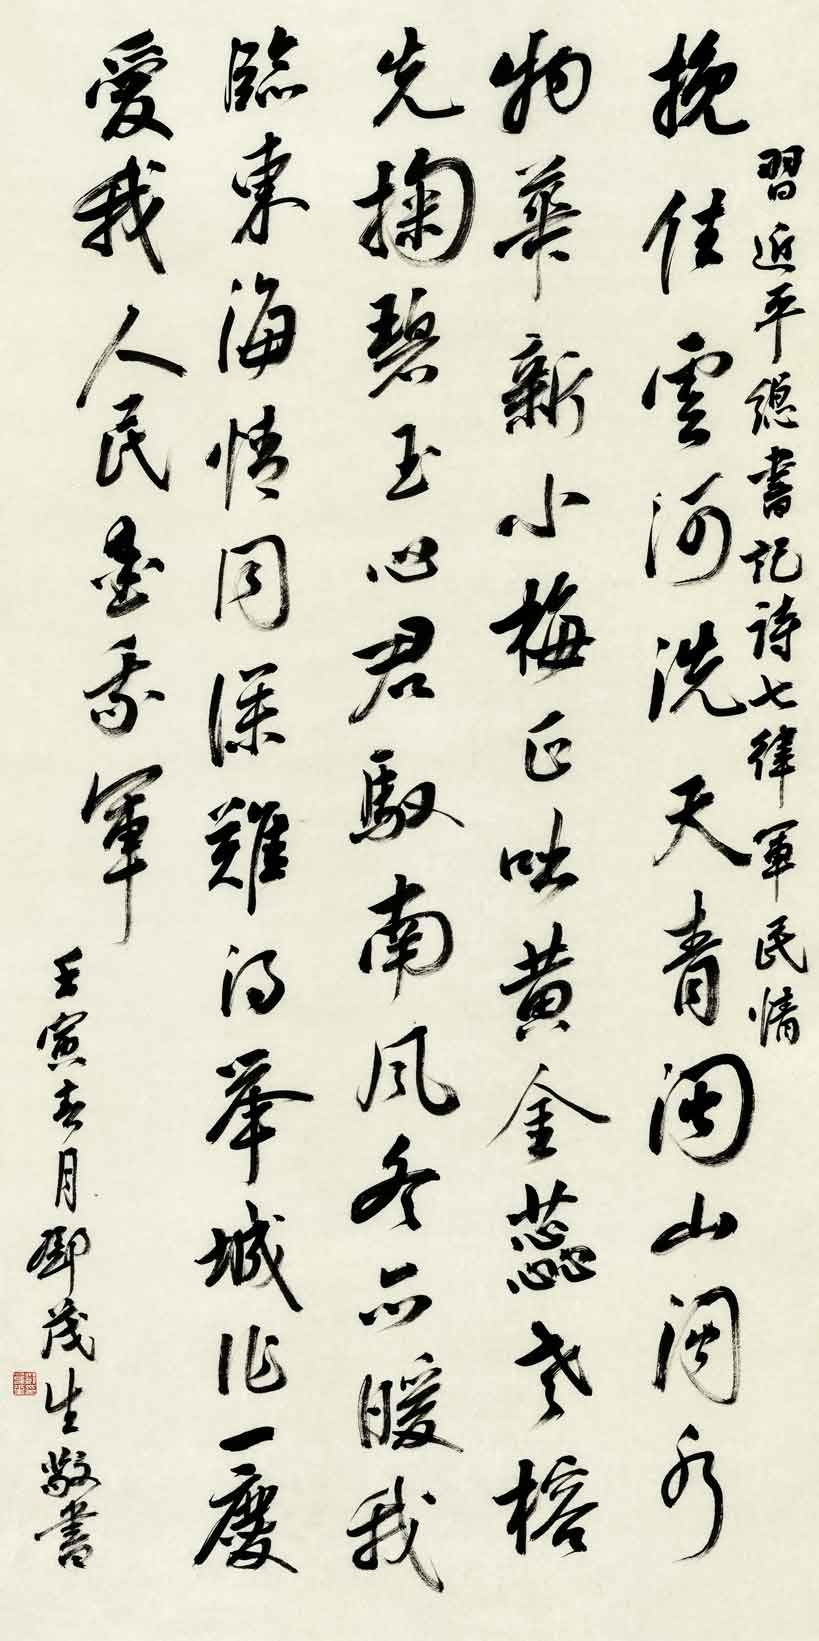 習近平總書記詩七律軍民情
挽住雲河洗天青閩山閩水
物華新小梅正吐黃金蕊老榕
先掬碧玉心君馭南風冬亦暖我
臨東海情同深難得舉城作一慶
愛我人民愛我軍
壬寅春月鄧茂生敬書